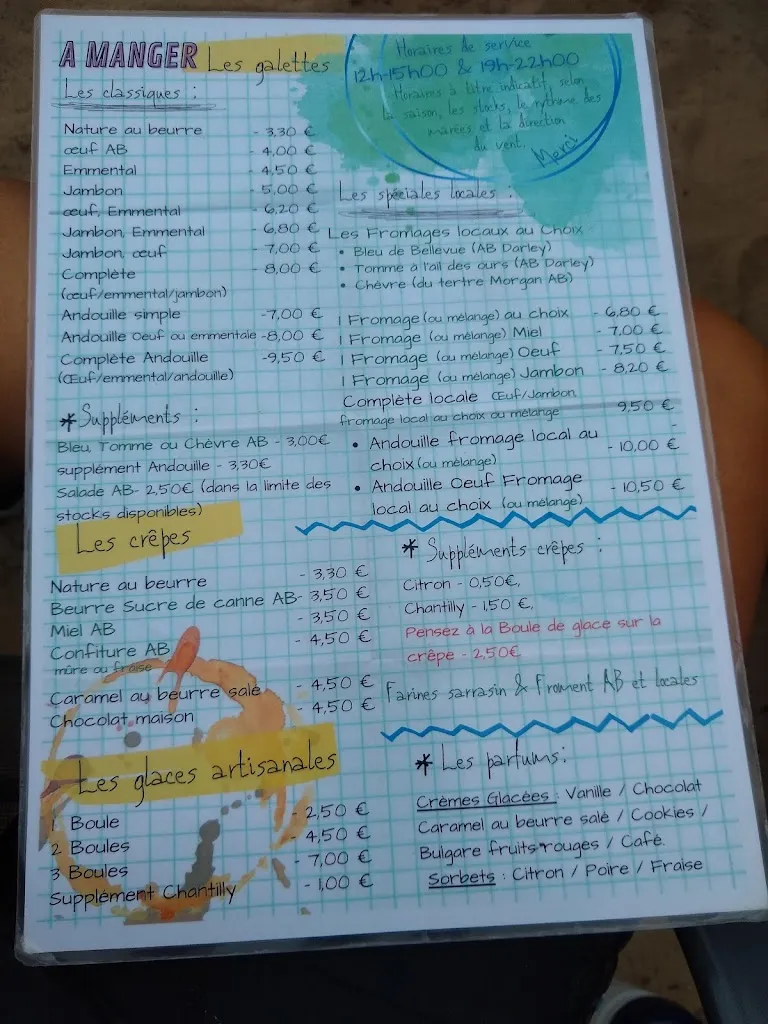 A MANGER Les galettes
Les classiques :
Nature au beurre - 3,30 €
œuf AB - 4,00 €
Emmental - 4,50 €
Jambon - 5,00 €
œuf, Emmental - 6,20 €
Jambon, Emmental - 6,80 €
Jambon, œuf - 7,00 €
Complète - 8,00 €
(œuf/emmental/jambon)
Andouille simple -7,00 €
Andouille Oeuf ou emmentale -8,00 €
Complète Andouille -9,50 €
(Œuf/emmental/andouille)
* Suppléments :
Bleu, Tomme ou Chèvre AB - 3,00€
supplément Andouille - 3,30€
Salade AB- 2,50€ (dans la limite des
stocks disponibles)
Horaires de service
12h-15h00 & 19h-22h00
Horaires à titre indicatif, selon
la saison, les stocks, le rythme des
marées et la direction
du vent.
Merci
Les spéciales locales :
Les Fromages locaux au Choix
• Bleu de Bellevue (AB Darley)
• Tomme à l'ail des ours (AB Darley)
• Chèvre (du tertre Morgan AB)
1 Fromage (ou mélange) au choix - 6,80 €
1 Fromage (ou mélange) Miel - 7,00 €
1 Fromage (ou mélange) Oeuf - 7,50 €
1 Fromage (ou mélange) Jambon - 8,20 €
Complète locale Œuf/Jambon,
fromage local au choix ou mélange 9,50 €
• Andouille fromage local au
choix (ou mélange) - 10,00 €
• Andouille Oeuf Fromage
local au choix (ou mélange) - 10,50 €
Les crêpes
Nature au beurre - 3,30 €
Beurre Sucre de canne AB- 3,50 €
Miel AB - 3,50 €
Confiture AB - 4,50 €
mûre ou fraise
Caramel au beurre salé - 4,50 €
Chocolat maison - 4,50 €
* Suppléments crêpes :
Citron - 0,50€,
Chantilly - 1,50 €,
Pensez à la Boule de glace sur la
crêpe - 2,50€
Farines sarrasin & Froment AB et locales
Les glaces artisanales
1 Boule - 2,50 €
2 Boules - 4,50 €
3 Boules - 7,00 €
Supplément Chantilly - 1,00 €
* Les parfums:
Crèmes Glacées : Vanille / Chocolat
Caramel au beurre salé / Cookies /
Bulgare fruits rouges / Café.
Sorbets : Citron / Poire / Fraise